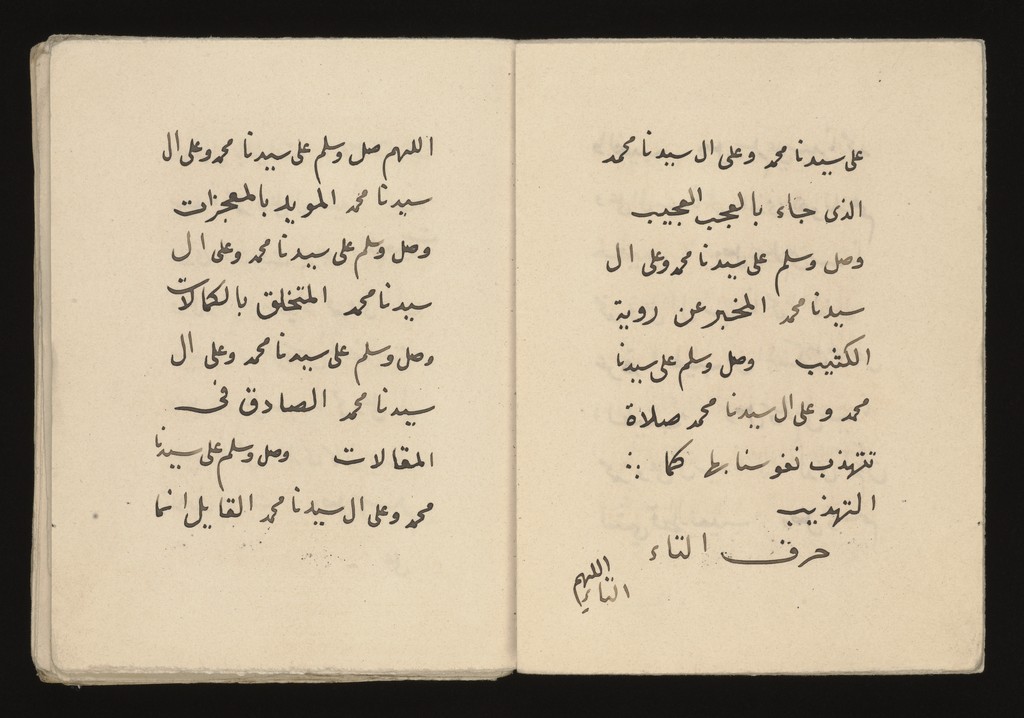 على سيدنا محمد وعلى ال سيدنا محمد
الذى جاء بالعجب العجيب
وصل وسلم على سيدنا محمد وعلى ال
سيدنا محمد المخبر عن روية
الكثيب وصل وسلم على سيدنا
محمد وعلى ال سيدنا محمد صلاة
تتهذب نفوسنا بها كما
التهذيب
حرف التاء
اللهم
اللهم صل وسلم على سيدنا محمد وعلى ال
سيدنا محمد المويد بالمعجزات
وصل وسلم على سيدنا محمد وعلى ال
سيدنا محمد المتخلق بالكمالات
وصل وسلم على سيدنا محمد وعلى ال
سيدنا محمد الصادق فى
المقالات وصل وسلم على سيدنا
محمد وعلى ال سيدنا محمد القايل انما